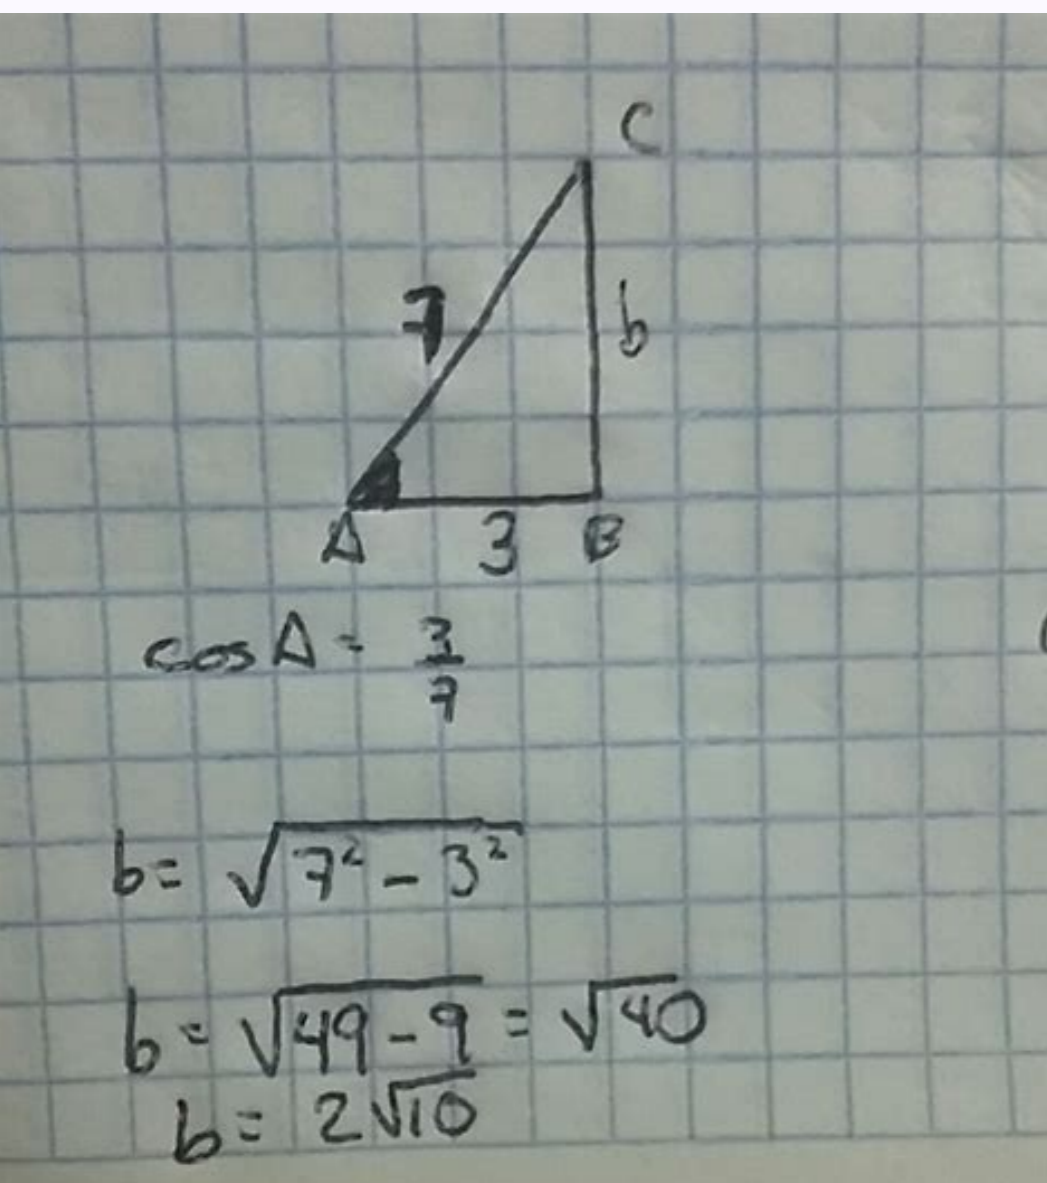 C
7
b
A 3 B
cos A = 3/7
b = √(7² - 3²)
b = √(49 - 9) = √40
b = 2√10